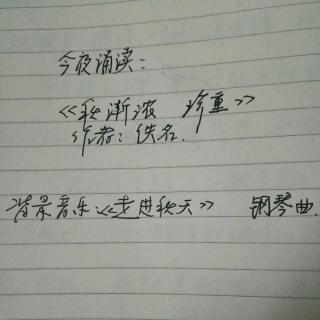 今夜诵读：
《秋渐浓  珍重》
作者：佚名.
背景音乐：《走进秋天》  钢琴曲.